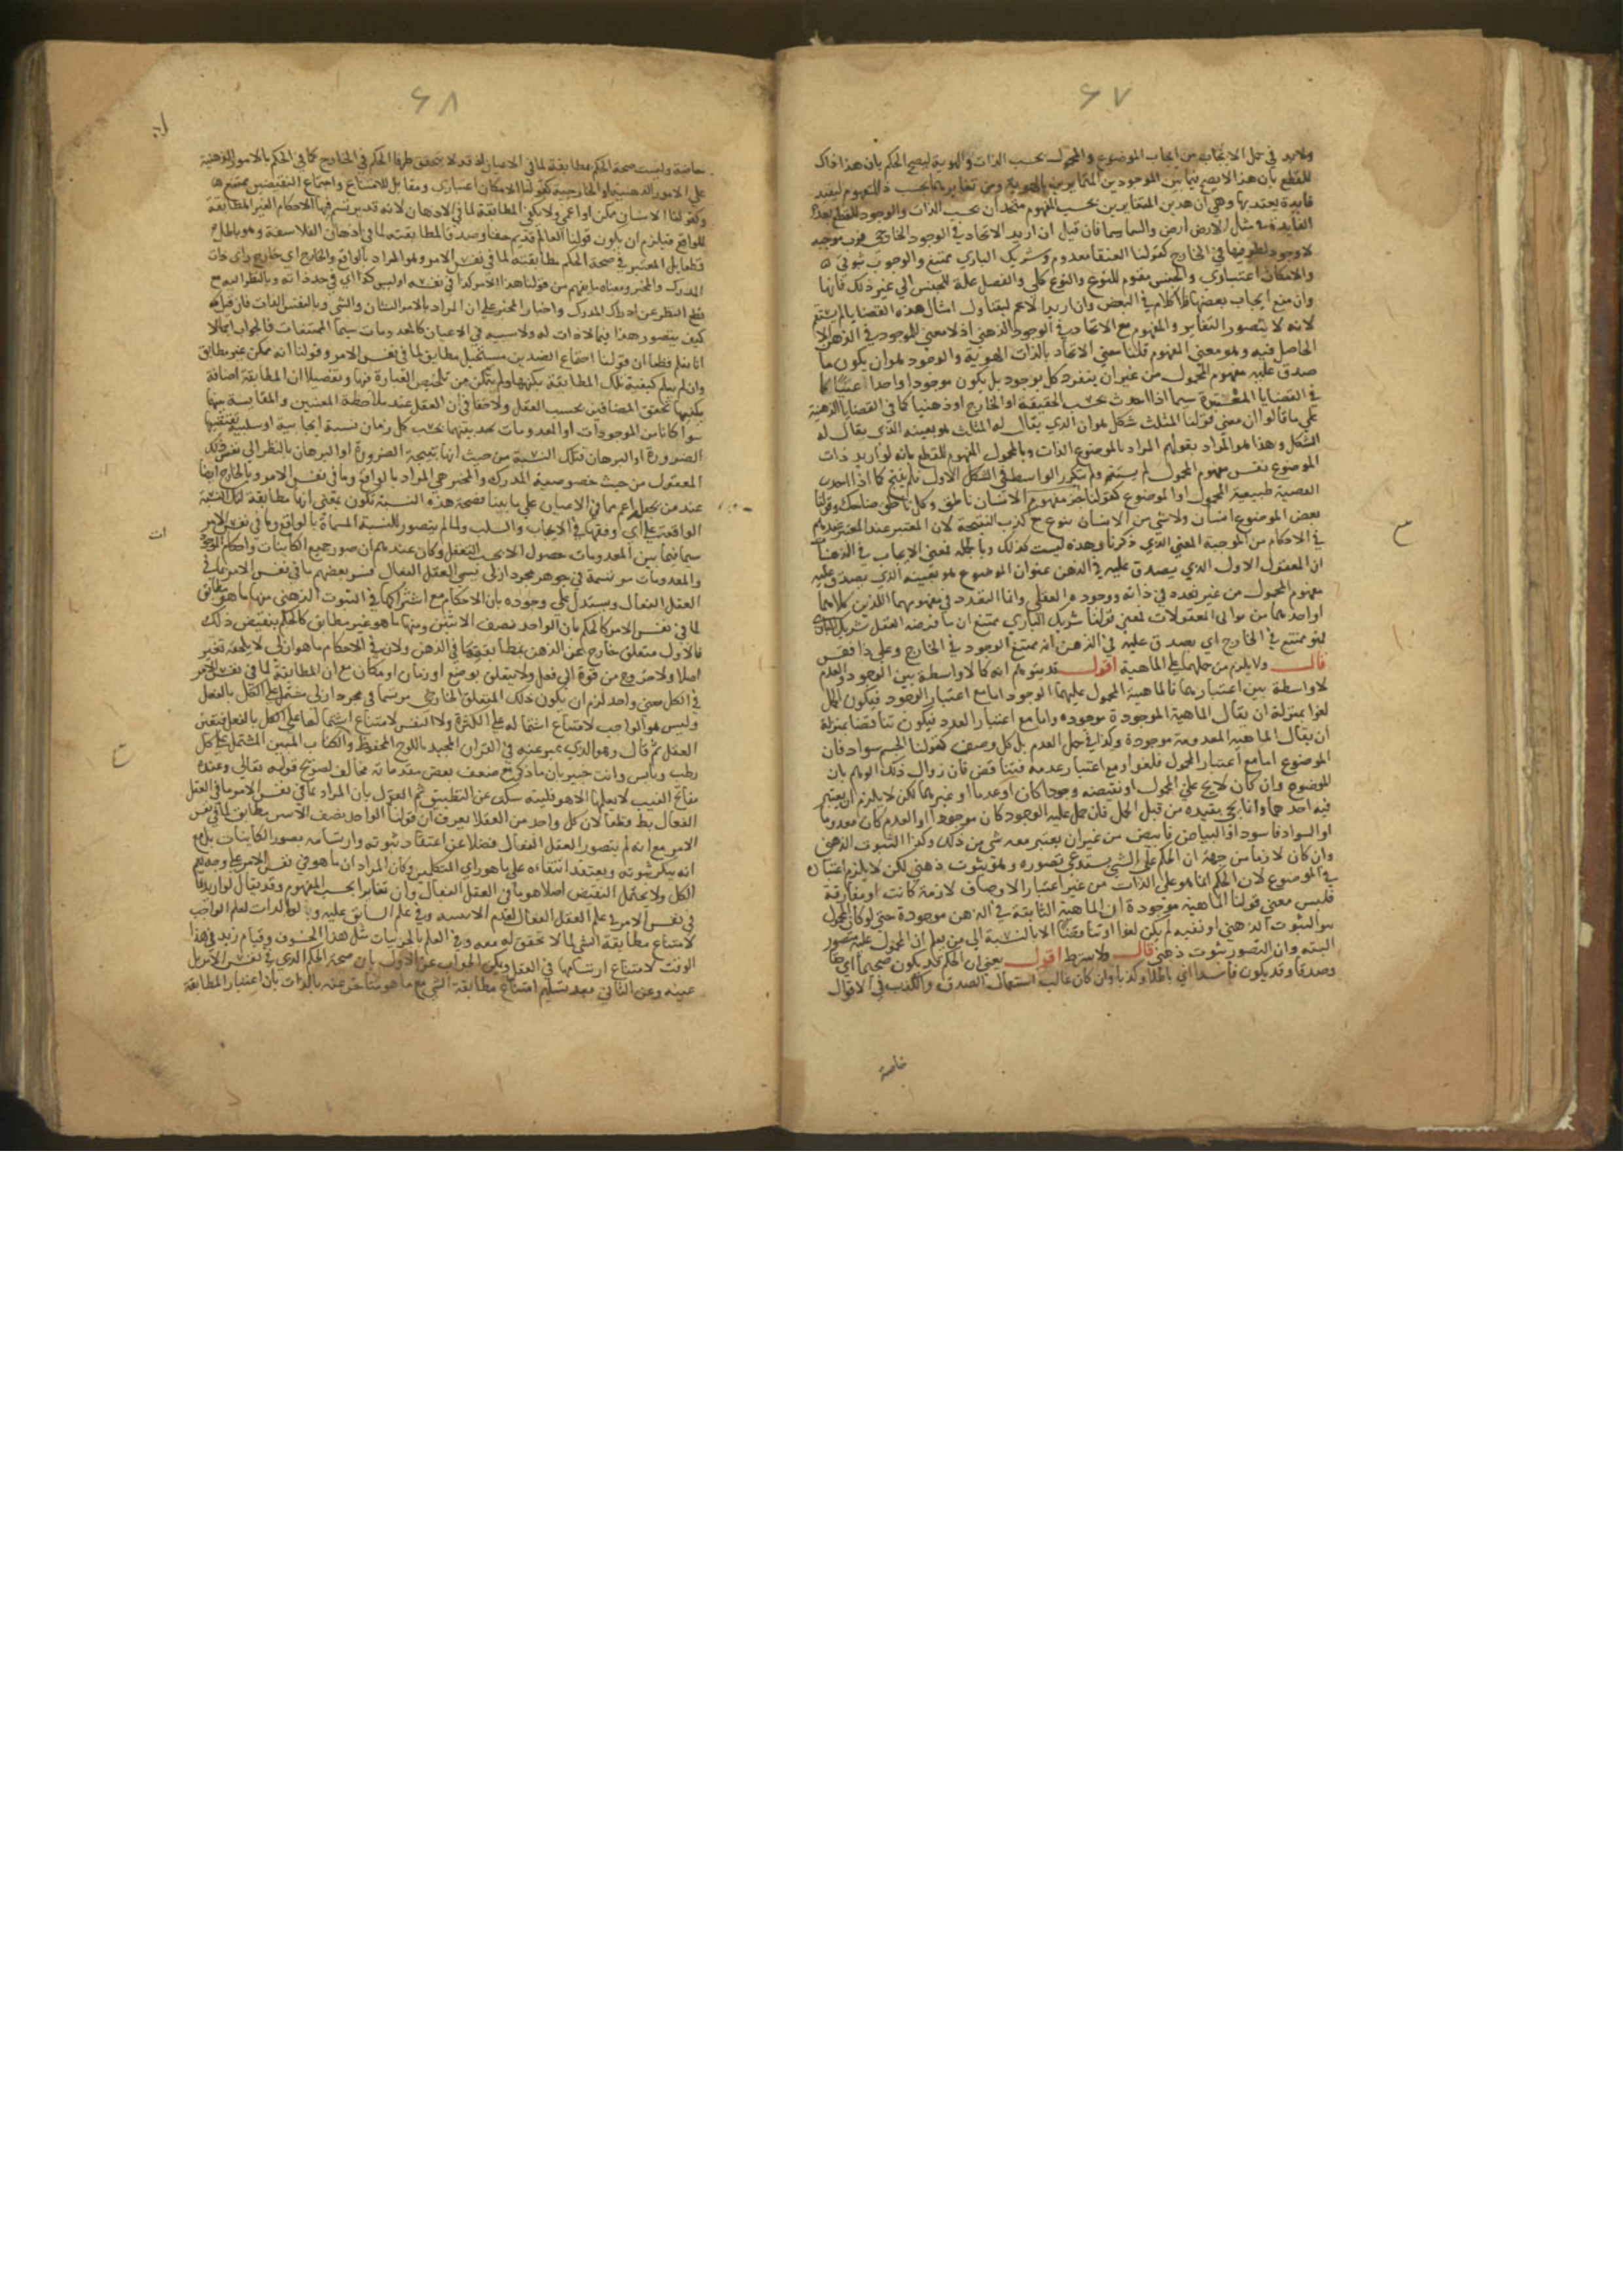 ٦٧
ولابد في حمل الايجاب من ايجاب الموضوع والمحمول بحسب الذات والهوية ليصح الحكم بان هذا ذاك
للقطع بان هذا لا يصح فيما بين الموجودين المتمايزين بالهوية ومن تغايرهما بحسب المفهوم ليفيد
فايدة يعتد بها وهي ان هذين المتغايرين بحسب المفهوم متحدان بحسب الذات والوجود للقطع بعدم
الفايدة في مثل الارض ارض والسما سما فان قيل ان اريد الاتحاد في الوجود الخارجي فرب موجبة
لا وجود لطرفيها في الخارج كقولنا العنقا معدوم وشريك الباري ممتنع والوجوب ثبوتي
والامكان اعتباري والجنس مقوم للنوع والنوع كلي والفصل علة للجنس الي غير ذلك فانها
وان منع ايجاب بعضها فلا كلام في البعض وان اريد الاعم ليتناول امثال هذه القضايا لم يستقم
لانه لا يتصور التغاير والمفهوم مع الاتحاد في الوجود الذهني اذ لا معني للموجود في الذهن الا
الحاصل فيه وهو معني المفهوم قلنا معني الاتحاد بالذات الهوية والوجود هو ان يكون ما
صدق عليه مفهوم المحمول من غير ان ينفرد كل بوجود بل يكون موجودا واحدا عينيا كما
في القضايا المعتبرة سيما اذا اخذت بحسب الحقيقة او الخارج او ذهنيا كما في القضايا الذهنية
علي ما قالوا ان معني قولنا المثلث شكل هو ان الذي يقال له المثلث هو بعينه الذي يقال له
الشكل وهذا هو المراد بقولهم المراد بالموضوع الذات وبالمحمول المفهوم للقطع بانه لو اريد ذات
الموضوع نفس مفهوم المحمول لم يستقم ولم يتكرر الواسط في الشكل الاول فلم ينتج كما اذا اخذت
القضية طبيعية المحمول او الموضوع كقولنا جزء مفهوم الانسان ناطق وكل ناطق ضاحك وقولنا
بعض الموضوع انسان ولا شي من الانسان بنوع مع كذب النتيجة لان المعتبر عند
في الاحكام من الموجبة المعني الذي ذكرنا وهذه ليست كذلك وبالجملة فمعني الايجاب في الذهنيات
ان المعقول الاول الذي يصدق عليه في الذهن عنوان الموضوع هو بعينه الذي يصدق عليه
مفهوم المحمول من غير تعدد في ذاته ووجوده العقلي وانما التعدد في مفهومهما اللذين كلاهما
او احدهما من ثواني المعقولات فمعني قولنا شريك الباري ممتنع ان ما فرضه العقل شريك الباري
فهو ممتنع في الخارج اي يصدق عليه في الذهن انه ممتنع الوجود في الخارج وعلي ذا فقس
قال ولا يلزم من حملهما علي الماهية اقول قد يتوهم انه كما لا واسطة بين الوجود والعدم
لا واسطة بين اعتبارهما فالماهية المحمول عليهما الوجود اما مع اعتبار الوجود فيكون الحمل
لغوا بمنزلة ان يقال الماهية الموجودة موجوده واما مع اعتبار العدم فيكون تناقضا بمنزلة
ان يقال الماهية المعدومة موجودة وكذا في حمل العدم بل كل وصف كقولنا الجسم سواد فان
الموضوع اما مع اعتبار المحمول فلغوا ومع اعتبار عدمه فتناقض فان زوال ذلك الوهم بان
الموضوع وان كان لا يخ علي المحمول او نقيضه وجودا كان او عدما او غيرهما لكن لا يلزم ان يعتبر
فيه احدهما وانما يجي بقيده من قبل الحمل فان حمل عليه الوجود كان موجودا او العدم كان معدوما
او السواد فاسود او البياض فابيض من غير ان يعتبر معه شي من ذلك وكذا الثبوت الذهني
وان كان لازما من جهة ان الحكم علي الشي يستدعي تصوره وهو ثبوت ذهني لكن لا يلزم اعتباره
في الموضوع لان الحكم انما هو علي الذات من غير اعتبار الاوصاف لازمة كانت او مفارقة
فليس معني قولنا الماهية موجودة ان الماهية الثابتة في الذهن موجودة حتي لو كان المحمول
هو الثبوت الذهني او نفيه لم يكن لغوا او تناقضا الا بالنسبة الي من يعلم ان المحمول عليه متصور
البته وان التصور ثبوت ذهني قال ولا يشترط اقول يعني ان الحكم قد يكون صحيحا اي حقا
وصدقا وقد يكون فاسدا اي باطلا وكذبا وان كان غالب استعمال الصدق والكذب في الاقوال
خاصة
٦٨
خاصة وليست صحة الحكم مطابقة لما في الاعيان اذ قد لا يتحقق طرفا الحكم في الخارج كما في الحكم بالامور الذهنية
علي الامور الذهنية او الخارجية كقولنا الامكان اعتباري ومقابل للامتناع واجتماع النقيضين ممتنع
وكقولنا الانسان ممكن او اعمي ولا يكفي المطابقة لما في الاذهان لانه قد يرتسم فيها الاحكام الغير المطابقة
للواقع فيلزم ان يكون قولنا العالم قديم حقا وصدقا لمطابقته لما في اذهان الفلاسفة وهو باطل
قطعا بل المعتبر في صحة الحكم مطابقته لما في نفس الامر وهو المراد بالواقع والخارج اي خارج ذات
المدرك والمخبر ومعناه ما يفهم من قولنا هذا الامر كذا في نفسه او ليس كذا اي في حد ذاته وبالنظر اليه مع
قطع النظر عن ادراك المدرك واخبار المخبر علي ان المراد بالامر الشان والشي وبالنفس الذات فان قيل
كيف يتصور هذا فيما لا ذات له ولا شييه في الاعيان كالمعدومات سيما الممتنعات فالجواب اجمالا
انا نعلم قطعا ان قولنا اجتماع الضدين مستحيل مطابق لما في نفس الامر وقولنا انه ممكن غير مطابق
وان لم نعلم كيفية تلك المطابقة بكنهها ولم نتمكن من تلخيص العبارة فيها وتفصيلا ان المطابقة اضافة
يكفيها تحقق المضافين بحسب العقل ولا خفا في ان العقل عند ملاحظة المعنيين والمقايسة بينهما
سوا كانا من الموجودات او المعدومات يجد بينهما بحسب كل زمان نسبة ايجابية او سلبية تقتضيها
الضرورة او البرهان فتلك النسبة من حيث انها نتيجة الضرورة او البرهان بالنظر الي نفس ذلك
المعقول من حيث خصوصية المدرك والمخبر هي المراد بالواقع وما في نفس الامر وبالخارج ايضا
عند من يجعله اعم مما في الاعيان علي ما بينا فصحة هذه النسبة تكون بمعني انها مطابقة لتلك النسبة
الواقعة علي اي وفقها في الايجاب والسلب ولما لم يتصور للنسبة المسماة بالواقع وما في نفس الامر
سيما فيما بين المعدومات حصول الا بحسب التعقل وكان عندهم ان صور جميع الكاينات واحكام الموجودات
والمعدومات مرتسمة في جوهر مجرد ازلي يسمي العقل الفعال فسر بعضهم ما في نفس الامر بما في
العقل الفعال ويستدل علي وجوده بان الاحكام مع اشتراكها في الثبوت الذهني منها ما هو مطابق
لما في نفس الامر كالحكم بان الواحد نصف الاثنين ومنها ما هو غير مطابق كالحكم بنقيض ذلك
فللاول متعلق خارج عن الذهن يطابقه ما في الذهن ولان في الاحكام ما هو ازلي لا يلحقه تغير
اصلا ولا خروج من قوة الي فعل ولا يتعلق بوضع او زمان او مكان مع ان المطابقة لما في نفس الامر
في الكل معني واحد لزم ان يكون ذلك المتعلق الخارجي مرتسما في مجرد ازلي مشتمل علي الكل بالفعل
وليس هو الواجب لامتناع اشتماله علي الكثرة ولا النفس لامتناع اشتمالها علي الكل بالفعل فتعين
العقل ثم قال وهو الذي عبر عنه في القران المجيد باللوح المحفوظ والكتاب المبين المشتمل علي كل
رطب ويابس وانت خبير بان ما ذكر مع ضعف بعض مقدماته مخالف لصريح قوله تعالي وعنده
مفاتح الغيب لا يعلمها الا هو فليته سكت عن التطبيق ثم القول بان المراد بما في نفس الامر ما في العقل
الفعال بط قطعا لان كل واحد من العقلا يعرف ان قولنا الواحد نصف الاثنين مطابق لما في نفس
الامر مع انه لم يتصور العقل الفعال فضلا عن اعتقاد ثبوته وارتسامه بصور الكاينات بل مع
انه ينكر ثبوته ويعتقد انتفاءه علي ما هو راي المتكلمين وكان المراد ان ما هو في نفس الامر علي وجه يعم
الكل ولا يحتمل النقيض اصلا هو ما في العقل الفعال وان تغايرا بحسب المفهوم وقد يقال لو اريد بما
في نفس الامر علم العقل الفعال لعلم الواجب
لامتناع مطابقة الشي لما لا تحقق له معه وفي العلم بالجزييات مثل هذا الخسوف وقيام زيد في هذا
الوقت لامتناع ارتسامها في العقل ويمكن الجواب عن الاول بان صحة الحكم الذي في نفس الامر بل
عينه وعن الثاني بعد تسليم امتناع مطابقة الشي مع ما هو متاخر عنه بالذات بان اعتبار المطابقة